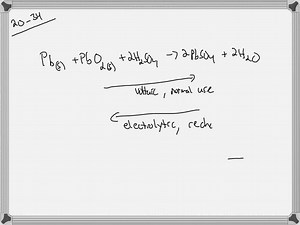 20-34
Pb(s) + PbO2(s) + 2H2SO4 → 2PbSO4 + 2H2O
voltaic, normal use
electrolytic, recha